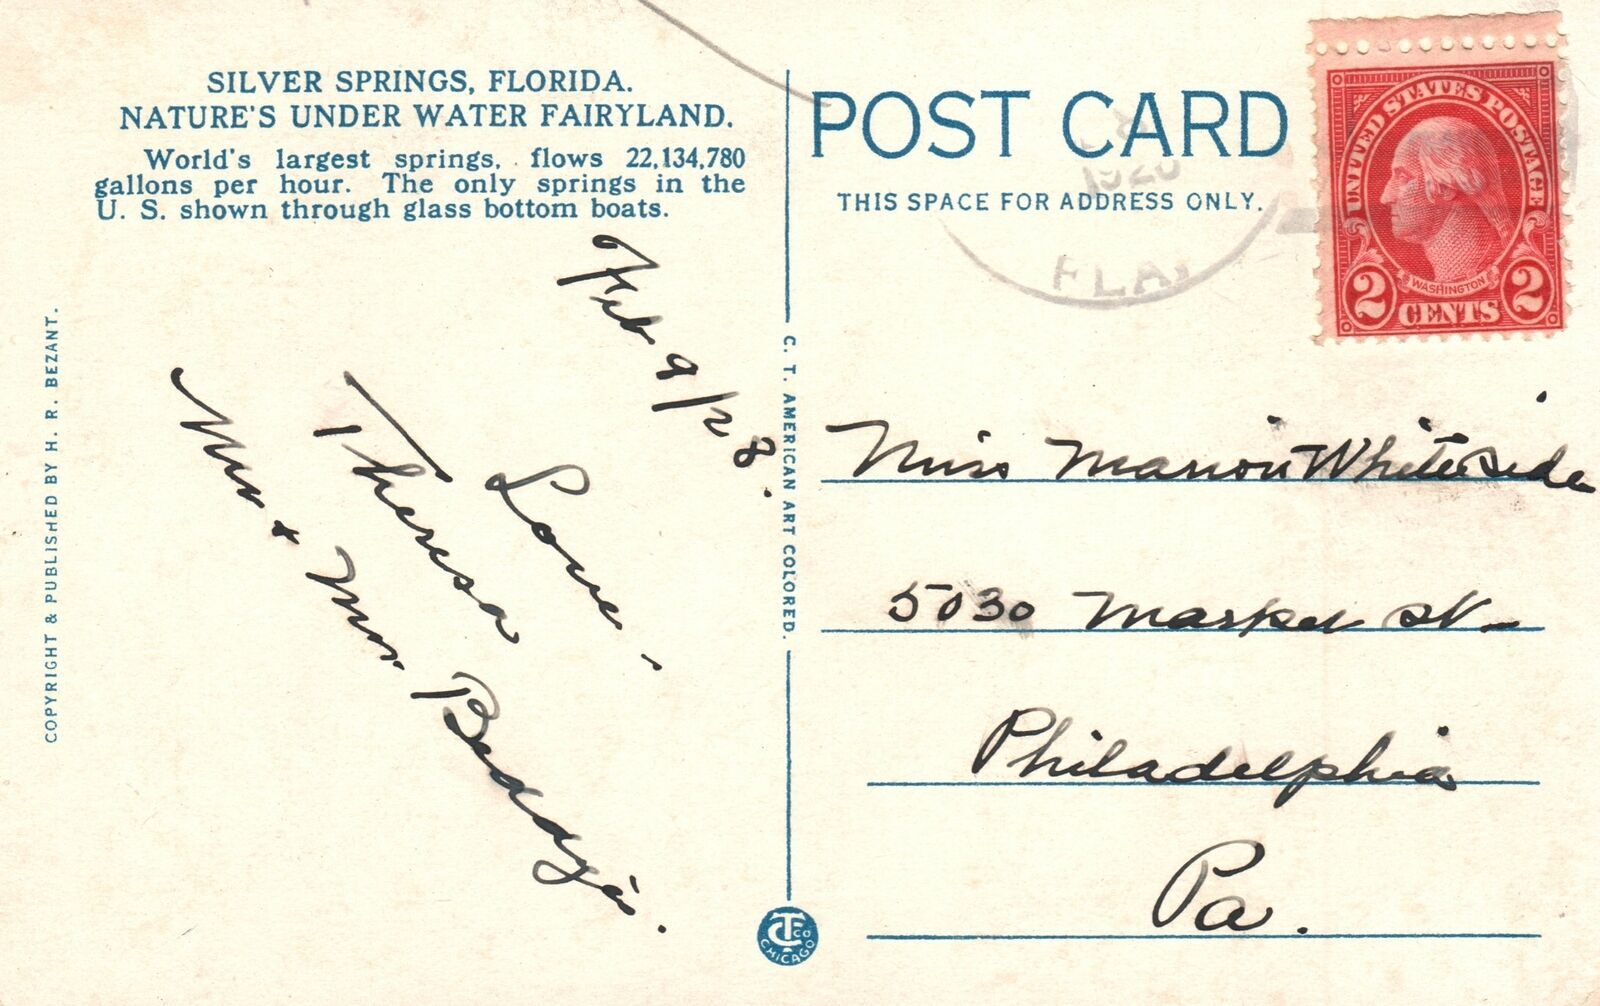 SILVER SPRINGS, FLORIDA.
NATURE'S UNDER WATER FAIRYLAND.
World's largest springs, flows 22,134,780
gallons per hour. The only springs in the
U. S. shown through glass bottom boats.
Feb 9/28.
Love -
Theresa
Mr + Mrs
COPYRIGHT & PUBLISHED BY H. R. BEZANT.
C. T. AMERICAN ART COLORED.
CT CO
CHICAGO
POST CARD
THIS SPACE FOR ADDRESS ONLY.
FLA.
UNITED STATES POSTAGE
WASHINGTON
2 CENTS 2
Miss Marion Whiteside
5030 Market St. -
Philadelphia
Pa.